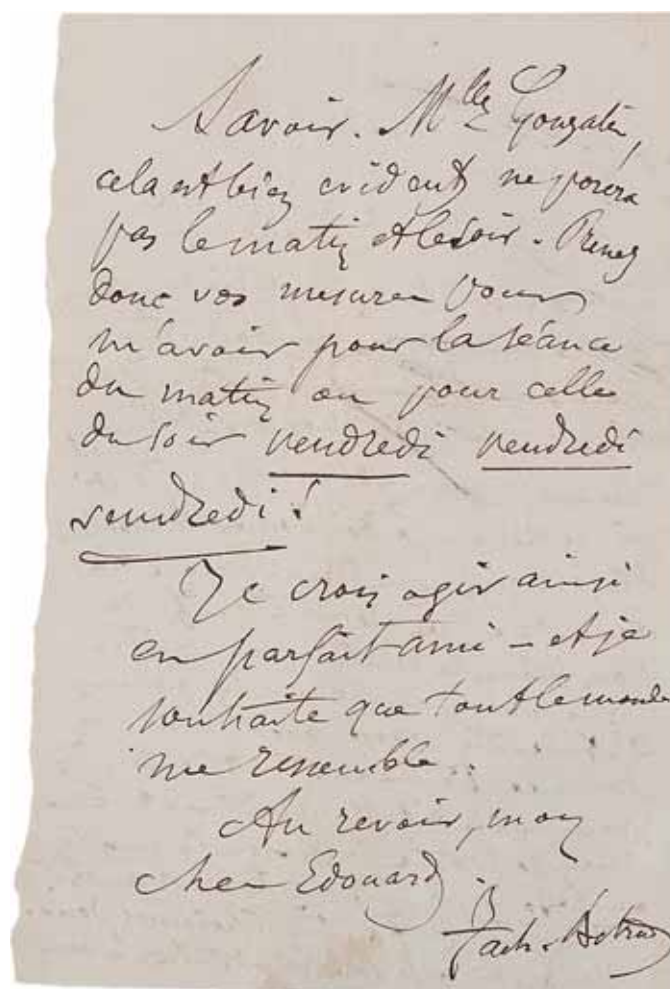 Savoir. Mlle Gonzalès,
cela est bien évident ne posera
pas le matin et le soir. Prenez
donc vos mesures pour
m'avoir pour la séance
du matin ou pour celle
du soir vendredi vendredi
vendredi !
Je crois agir ainsi
en parfait ami – et je
souhaite que tout le monde
me ressemble.
Au revoir, mon
cher Edouard.
Zach. Astruc